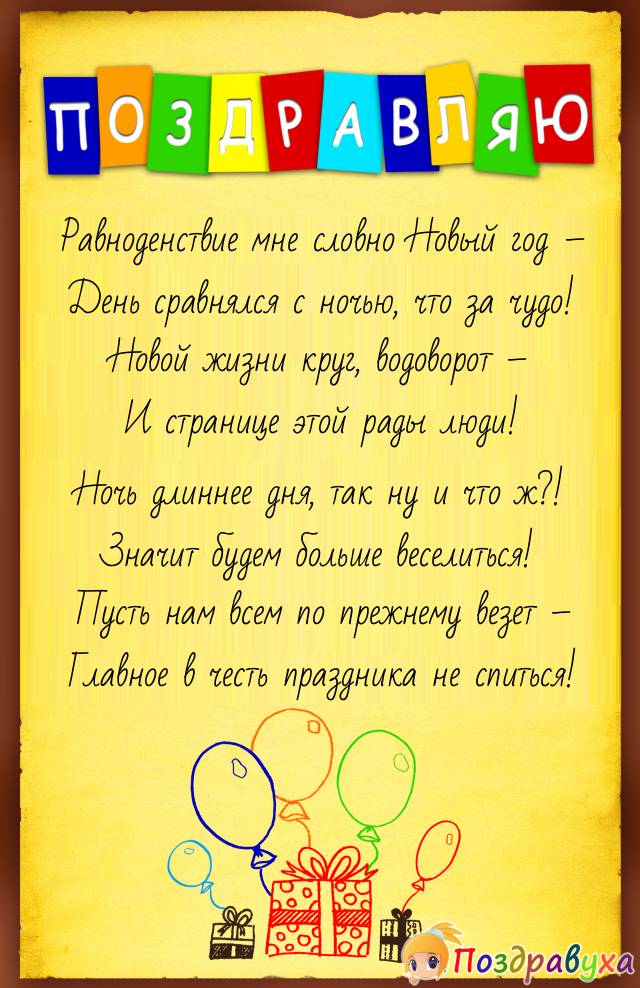 ПОЗДРАВЛЯЮ
Равноденствие мне словно Новый год –
День сравнялся с ночью, что за чудо!
Новой жизни круг, водоворот –
И странице этой рады люди!
Ночь длиннее дня, так ну и что ж?!
Значит будем больше веселиться!
Пусть нам всем по прежнему везет –
Главное в честь праздника не спиться!
Поздравуха